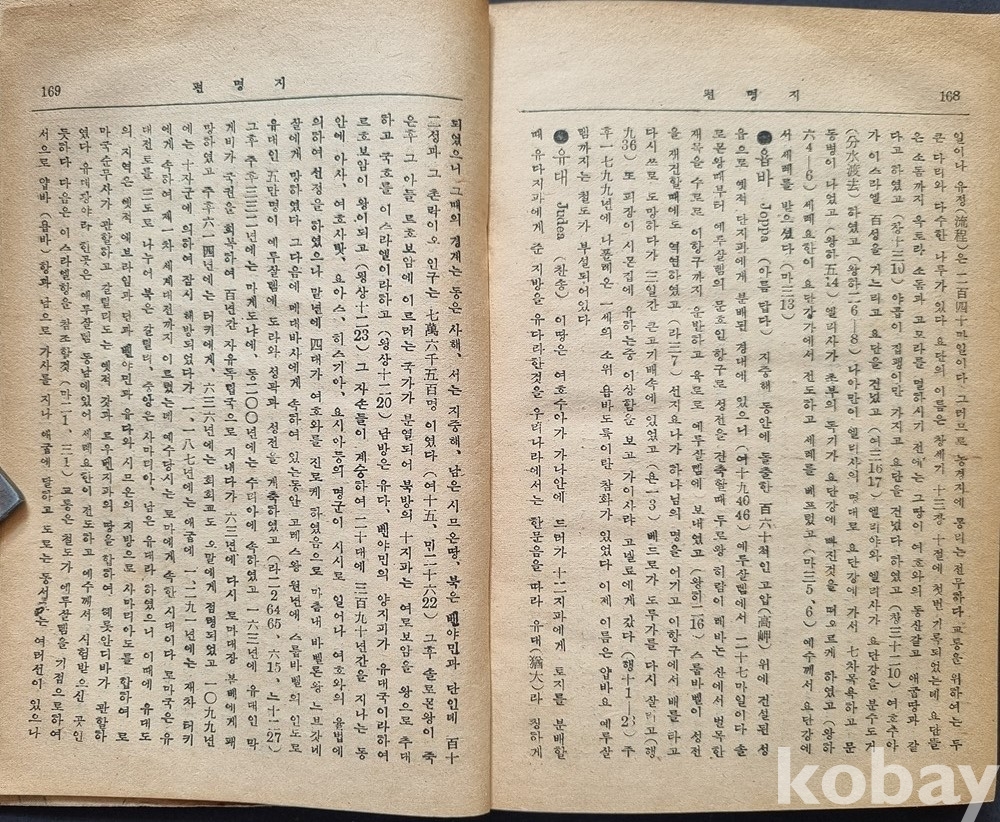 168 지명편
일이나 유정(流程)은 二百四十마일이다 그러므로 농경지에 통리는 전무하다 교통을 위하여는 두
큰 다리와 다수한 나루가 있다 요단의 이름은 창세기 十三장 十절에 첫번 기록되었는데 요단들
은 소돔까지 옥토라 소돔과 고모라를 멸하시기 전에는 그땅이 여호와의 동산같고 애굽땅과 같
다고 하였고 (창十三10) 야곱이 집팽이만 가지고 요단을 건넜다 하였고 (창三十二10) 여호수아
가 이스라엘 백성을 거느리고 요단을 건넜고 (여三1617) 엘리야와 엘리사가 요단강을 분수도거
(分水渡去) 하였고 (왕하二6—8) 나아만이 엘리사의 명대로 요단강에 가서 七차목욕하고 문
둥병이 나았고 (왕하五14) 엘리사가 초부의 독기가 요단강에 빠진것을 떠오르게 하였고 (왕하
六4—6) 세례요한이 요단강가에서 전도하고 세례를 베프렀고 (마三5,6) 예수께서 요단강에
서 세례를 받으셨다 (마三13)
●욥바 Joppa (아름답다) 지중해 동안에 돌출한 百六十척인 고갑(高岬) 위에 건설된 성
읍으로 옛적 단지파에게 분배된 경내에 있으니 (여十九4046) 예루살렘에서 三十七마일이다 솔
로몬왕때부터 예루살렘의 문호인 항구로 성전을 건축할때 두로왕 히람이 레바논 산에서 벌목한
재목을 수로로 이항구까지 운반하고 육로로 예루살렘에 보내였고 (왕하二16) 스룹바벨이 성전
을 재건할때에도 역연하였고 (라三7) 선지요나가 하나님의 명을 어기고 이항구에서 배를 타고
다시쓰로 도망하다가 三일간 큰고기배속에 있었고 (욘一3) 베드로가 도루가를 다시 살리고 (행
九36) 또 피장이시몬집에 유하는중 이상함을 보고 가이사랴 고넬료에게 갔다 (행十1—23) 주
후一七九九년에 나폴레온 一세의 소위 욥바도륙이란 참화가 있었다 이제 이름은 얍바요 예루살
렘까지는 철도가 부설되어있다
●유대 Judea (찬송) 이땅은 여호수아가 가나안에 드러가 十二지파에게 토지를 분배할
때 유다지파에게 준 지방을 유다라한것을 우리나라에서는 한문음을 따라 유대(猶大)라 칭하게
169 지명편
되었으니 그때의 경계는 동은 사해, 서는 지중해, 남은 시므온땅, 북은 벤야민과 단인데 百十
二성과 그 촌락이오 인구는 七萬六千五百명이였다 (여十五, 민二十六22) 그후 솔로몬왕이 죽
은후 그 아들 르호보암에 이르러는 국가가 분열되어 북방의 十지파는 여로보암을 왕으로 추대
하고 국호를 이스라엘이라하고 (왕상十二20) 남방은 유다, 벤야민의 양지파가 유대국이라하여
르호보암이 왕이되고 (왕상十二23) 그 자손들이 계승하여 二十대에 三百九十년간을 지나는 동
안에 아사, 여호사밧, 요아스, 히스기아, 요시아등의 명군이 시시로 일어나 여호와의 율법에
의하여 선정을 하였으나 말년에 四대가 여호와를 진로케 하였음으로 마츰내 바벨론왕 느브갓네
살에게 망하였다 그다음에 메대바사에게 속하여 있는동안 고레스왕 원년애 스룹바벨의 인도로
유대인 五만명이 예루살렘에 도라와 성곽과 성전을 개축하였고 (라一二265, 六15, 느十一27)
그후 주후三三二년에는 마게도냐에, 동二〇〇년에는 수리아에 속하였고 一六三년에 유대인 막
게비가 국권을 회복하여 百년간 자유독립국으로 지내다가 六三년에 다시 로마대장 분뻬에게 패
망하였고 주후六一四년에는 터키에게, 六三六년에는 회회교도 오말에게 점령되었고 一〇九九년
에는 十자군에 의하여 잠시 해방되었다가 一、一八七년에는 애굽에 一二九一년에는 재차 터키
에게 속하여 제一차 세계대전까지 이르렀는데 예수당시는 로마에게 속한 시대이다 로마국은 유
대전토를 三도로 나누어 북은 갈릴리, 중앙은 사마리아, 남은 유대라 하였으니 이때에 유대도
의 지역은 옛적 에브라임과 단과 벤야민과 유다와 시므온의 지방으로 사마리아도를 합하여 로
마국순무사가 관할하고 갈릴리도는 옛적 갓과 르우벤지파의 땅을 합하여 헤롯안디바가 관할하
였다 유대광야라 한곳은 예루살렘 동남에있어 세례요한이 전도하고 예수께서 시험받으신 곳인
듯하다 다음은 이스라엘항을 참조할것 (마二1、三1) 교통은 철도가 예루살렘을 기점으로하여
서으로 얍바 (욥바)항과 남으로 가사를 지나 애굽에 달하고 도로는 동서로는 여러선이 있으나
kobay